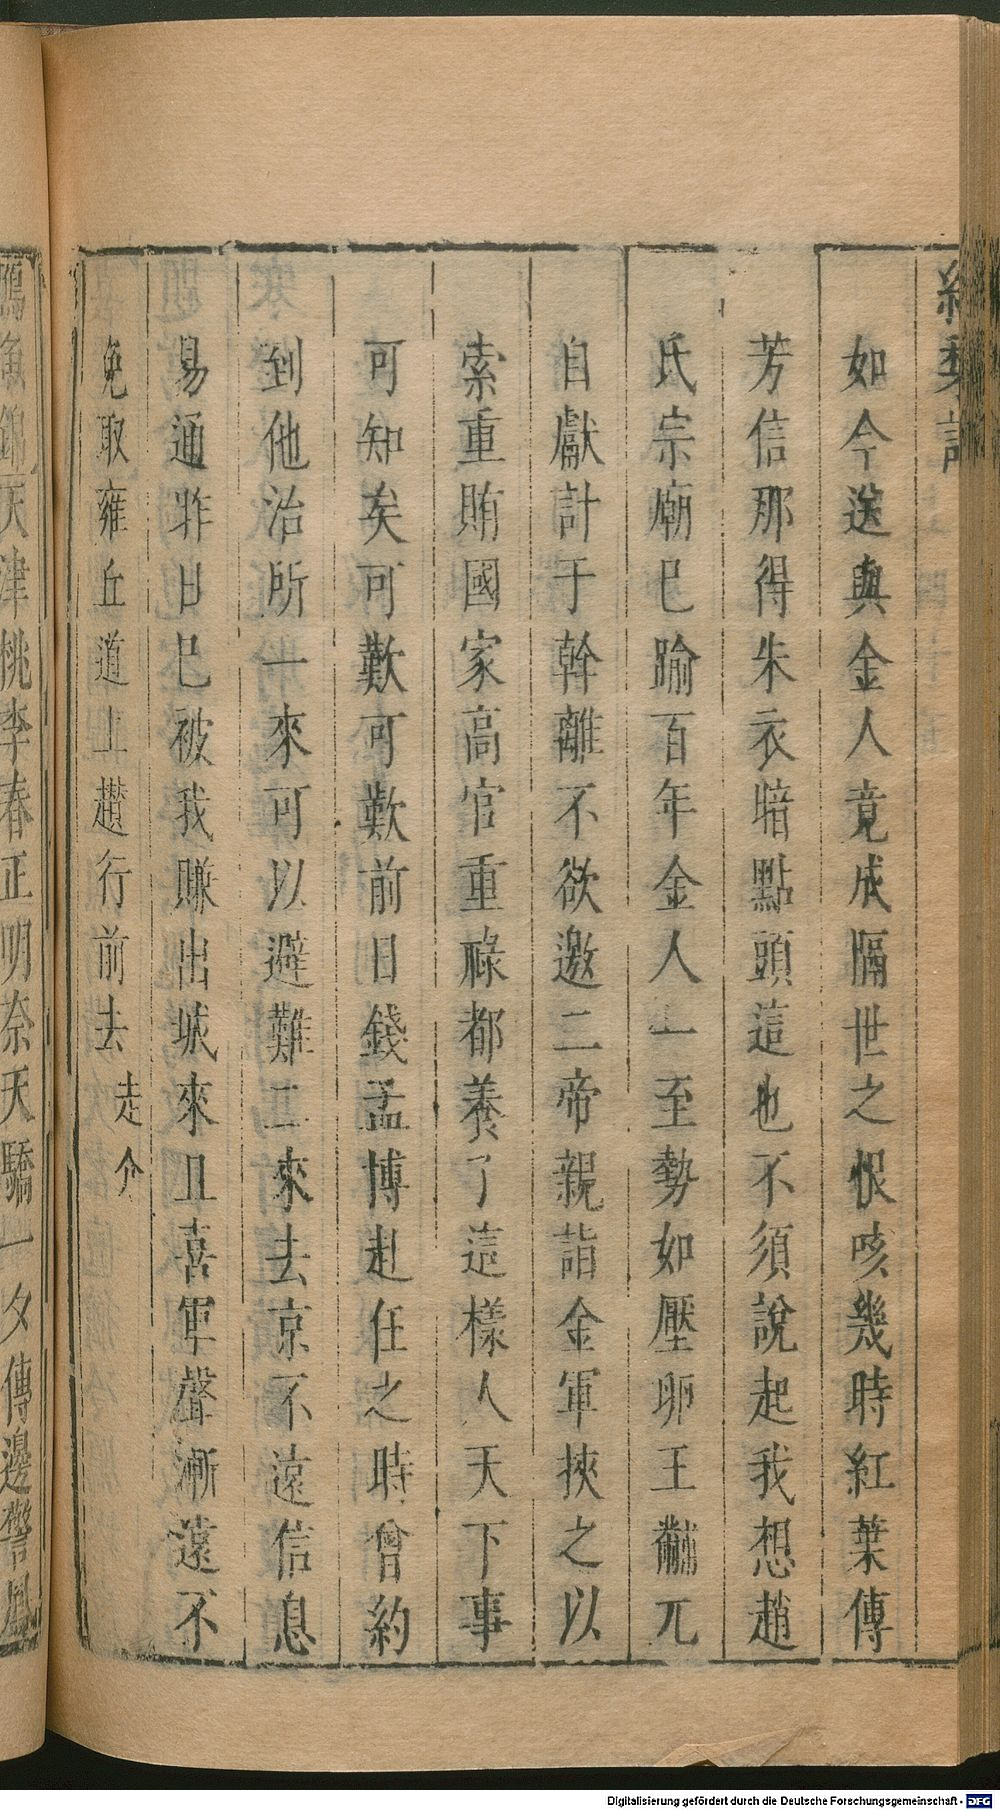 紅葉記
如今送與金人竟成隔世之恨咳幾時紅葉傳
芳信那得朱衣暗點頭這也不須說起我想趙
氏宗廟已踰百年金人一至勢如壓卵王黼兀
自獻計于幹離不欲邀二帝親詣金軍挾之以
索重賄國家高官重祿都養了這樣人天下事
可知矣可歎可歎前日錢孟博赴任之時曾約
到他治所一來可以避難二來去京不遠信息
易通昨日已被我賺出城來且喜軍聲漸遠不
免取雍丘道上趲行前去 走介
鴈魚錦天津桃李春正明奈天驕一夕傳邊警鳳
Digitalisierung gefördert durch die Deutsche Forschungsgemeinschaft - DFG